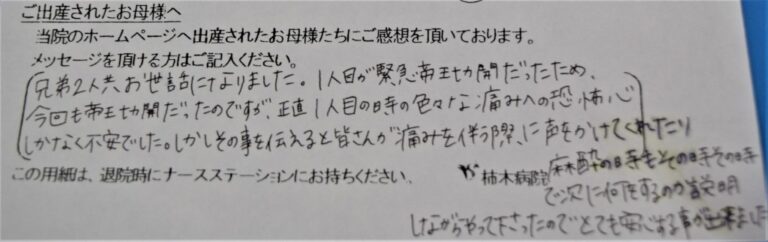 ご出産されたお母様へ
当院のホームページへ出産されたお母様たちにご感想を頂いております。
メッセージを頂ける方はご記入ください。
兄弟2人共お世話になりました。1人目が緊急帝王切開だったため、
今回も帝王切開だったのですが、正直1人目の時の色々な痛みへの恐怖心
しかなく不安でした。しかしその事を伝えると皆さんが痛みを伴う際、に声をかけてくれたり
麻酔の時もその時その時
で次に何をするのか説明
しながらやって下さったのでとても安心する事が出来ました
この用紙は、退院時にナースステーションにお持ちください。 柿木病院